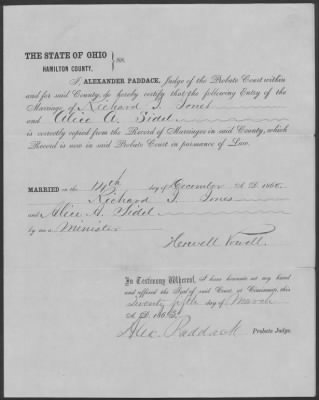 THE STATE OF OHIO
HAMILTON COUNTY, } SS.
I, ALEXANDER PADDACK, Judge of the Probate Court within
and for said County, do hereby certify that the following Entry of the
Marriage of Richard I. Jones
and Alice A. Sidel
is correctly copied from the Record of Marriages in said County, which
Record is now in said Probate Court in pursuance of Law.
MARRIED on the 14th day of December A. D. 186
Richard I. Jones
and Alice A. Sidel
by me a Minister
Howell Powell.
In Testimony Whereof, I have hereunto set my hand
and affixed the Seal of said Court, at Cincinnati, this
twenty fifth day of March
A. D. 186
Alex. Paddack Probate Judge.